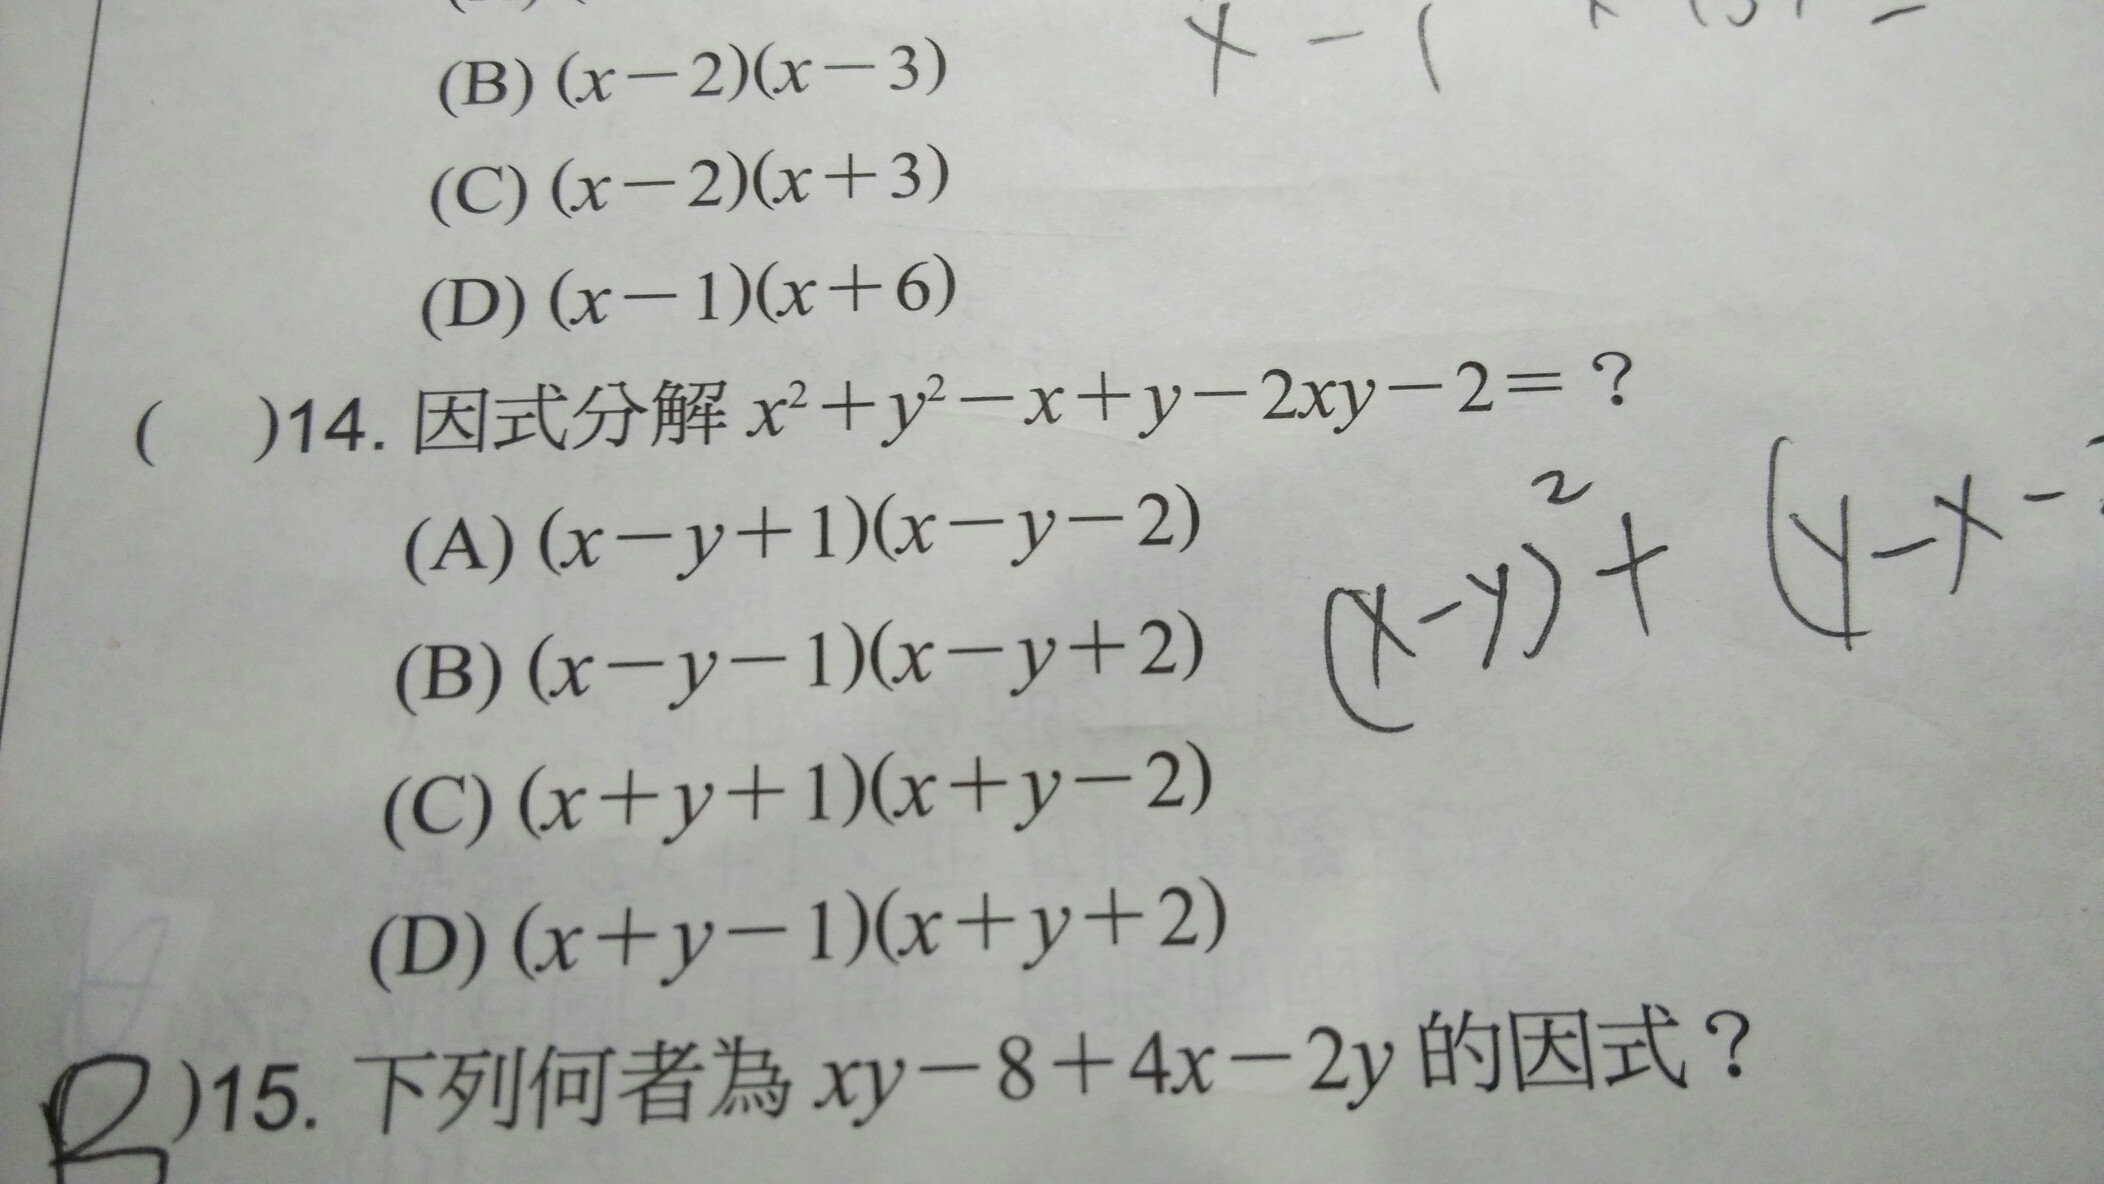 x - 1
(B) (x－2)(x－3)
(C) (x－2)(x＋3)
(D) (x－1)(x＋6)
(　)14. 因式分解 x²＋y²－x＋y－2xy－2＝？
(A) (x－y＋1)(x－y－2)
(x-y)² + (y-x-
(B) (x－y－1)(x－y＋2)
(C) (x＋y＋1)(x＋y－2)
(D) (x＋y－1)(x＋y＋2)
B )15. 下列何者為 xy－8＋4x－2y 的因式？